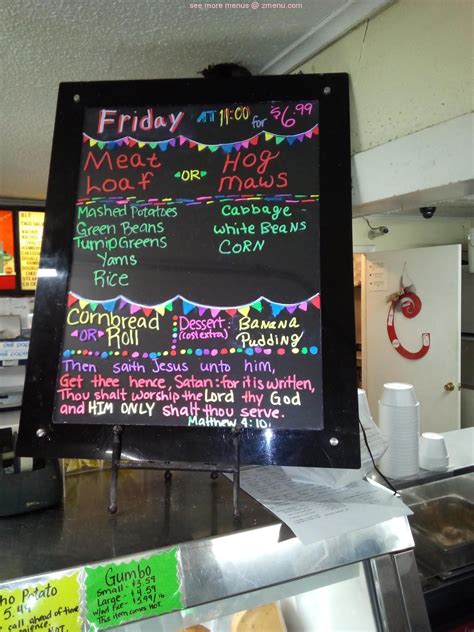 see more menus @ zmenu.com
Friday AT 11:00 for $6.99
Meat Loaf
OR
Hog maws
Mashed Potatoes
Green Beans
Turnip Greens
Yams
Rice
Cabbage
white Beans
CORN
Cornbread
OR
Roll
Dessert: (cost extra)
Banana Pudding
Then saith Jesus unto him,
Get thee hence, Satan: for it is written,
Thou shalt worship the Lord thy God
and HIM ONLY shalt thou serve.
Matthew 4:10
Potato
Gumbo
Small - $3.59
Large - $4.59
This item comes HOT